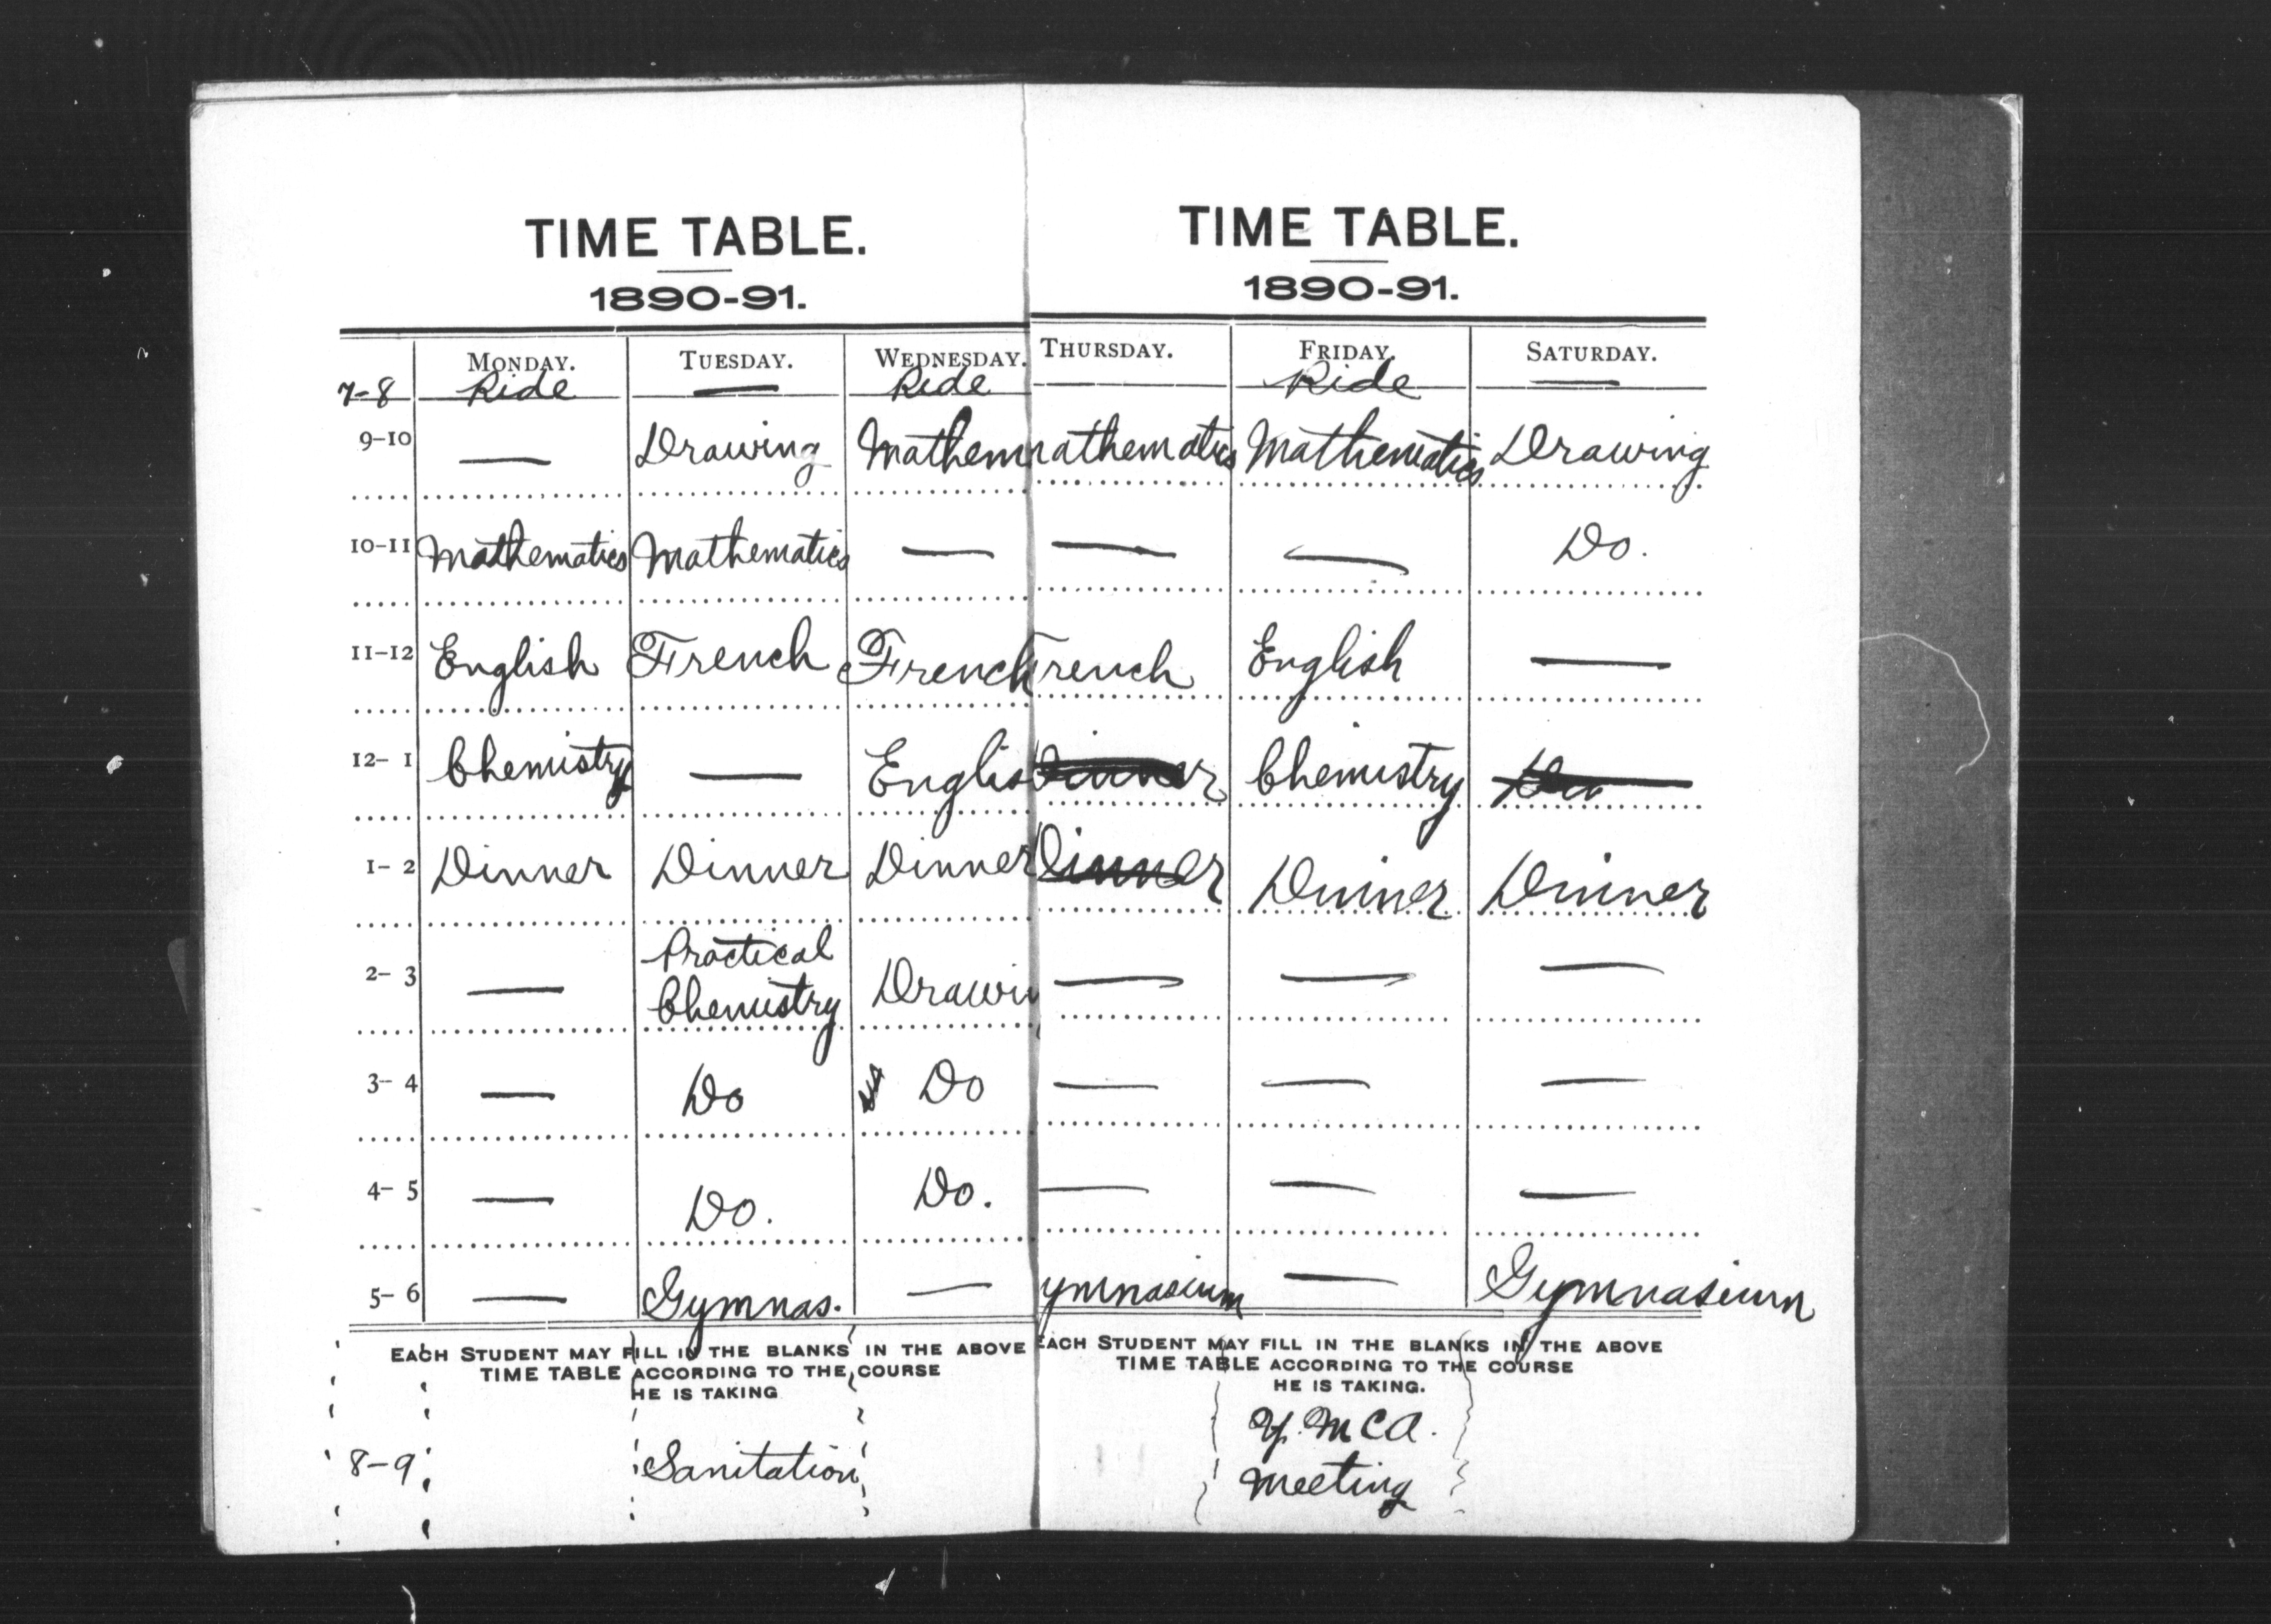 TIME TABLE.
1890-91.
MONDAY. TUESDAY. WEDNESDAY.
7-8 Ride — Ride
9-10 — Drawing Mathem
10-11 Mathematics Mathematics —
11-12 English French French
12-1 Chemistry — Englis
1-2 Dinner Dinner Dinner
2-3 — Practical Chemistry Drawin
3-4 — Do Do
4-5 — Do. Do.
5-6 — Gymnas. —
EACH STUDENT MAY FILL IN THE BLANKS IN THE ABOVE
TIME TABLE ACCORDING TO THE COURSE
HE IS TAKING
8-9 Sanitation
TIME TABLE.
1890-91.
THURSDAY. FRIDAY. SATURDAY.
— Ride —
athematics Mathematics Drawing
— — Do.
French English —
Dinner Chemistry
Dinner Dinner Dinner
— — —
— — —
— — —
ymnasium — Gymnasium
EACH STUDENT MAY FILL IN THE BLANKS IN THE ABOVE
TIME TABLE ACCORDING TO THE COURSE
HE IS TAKING.
Y.M C A.
Meeting